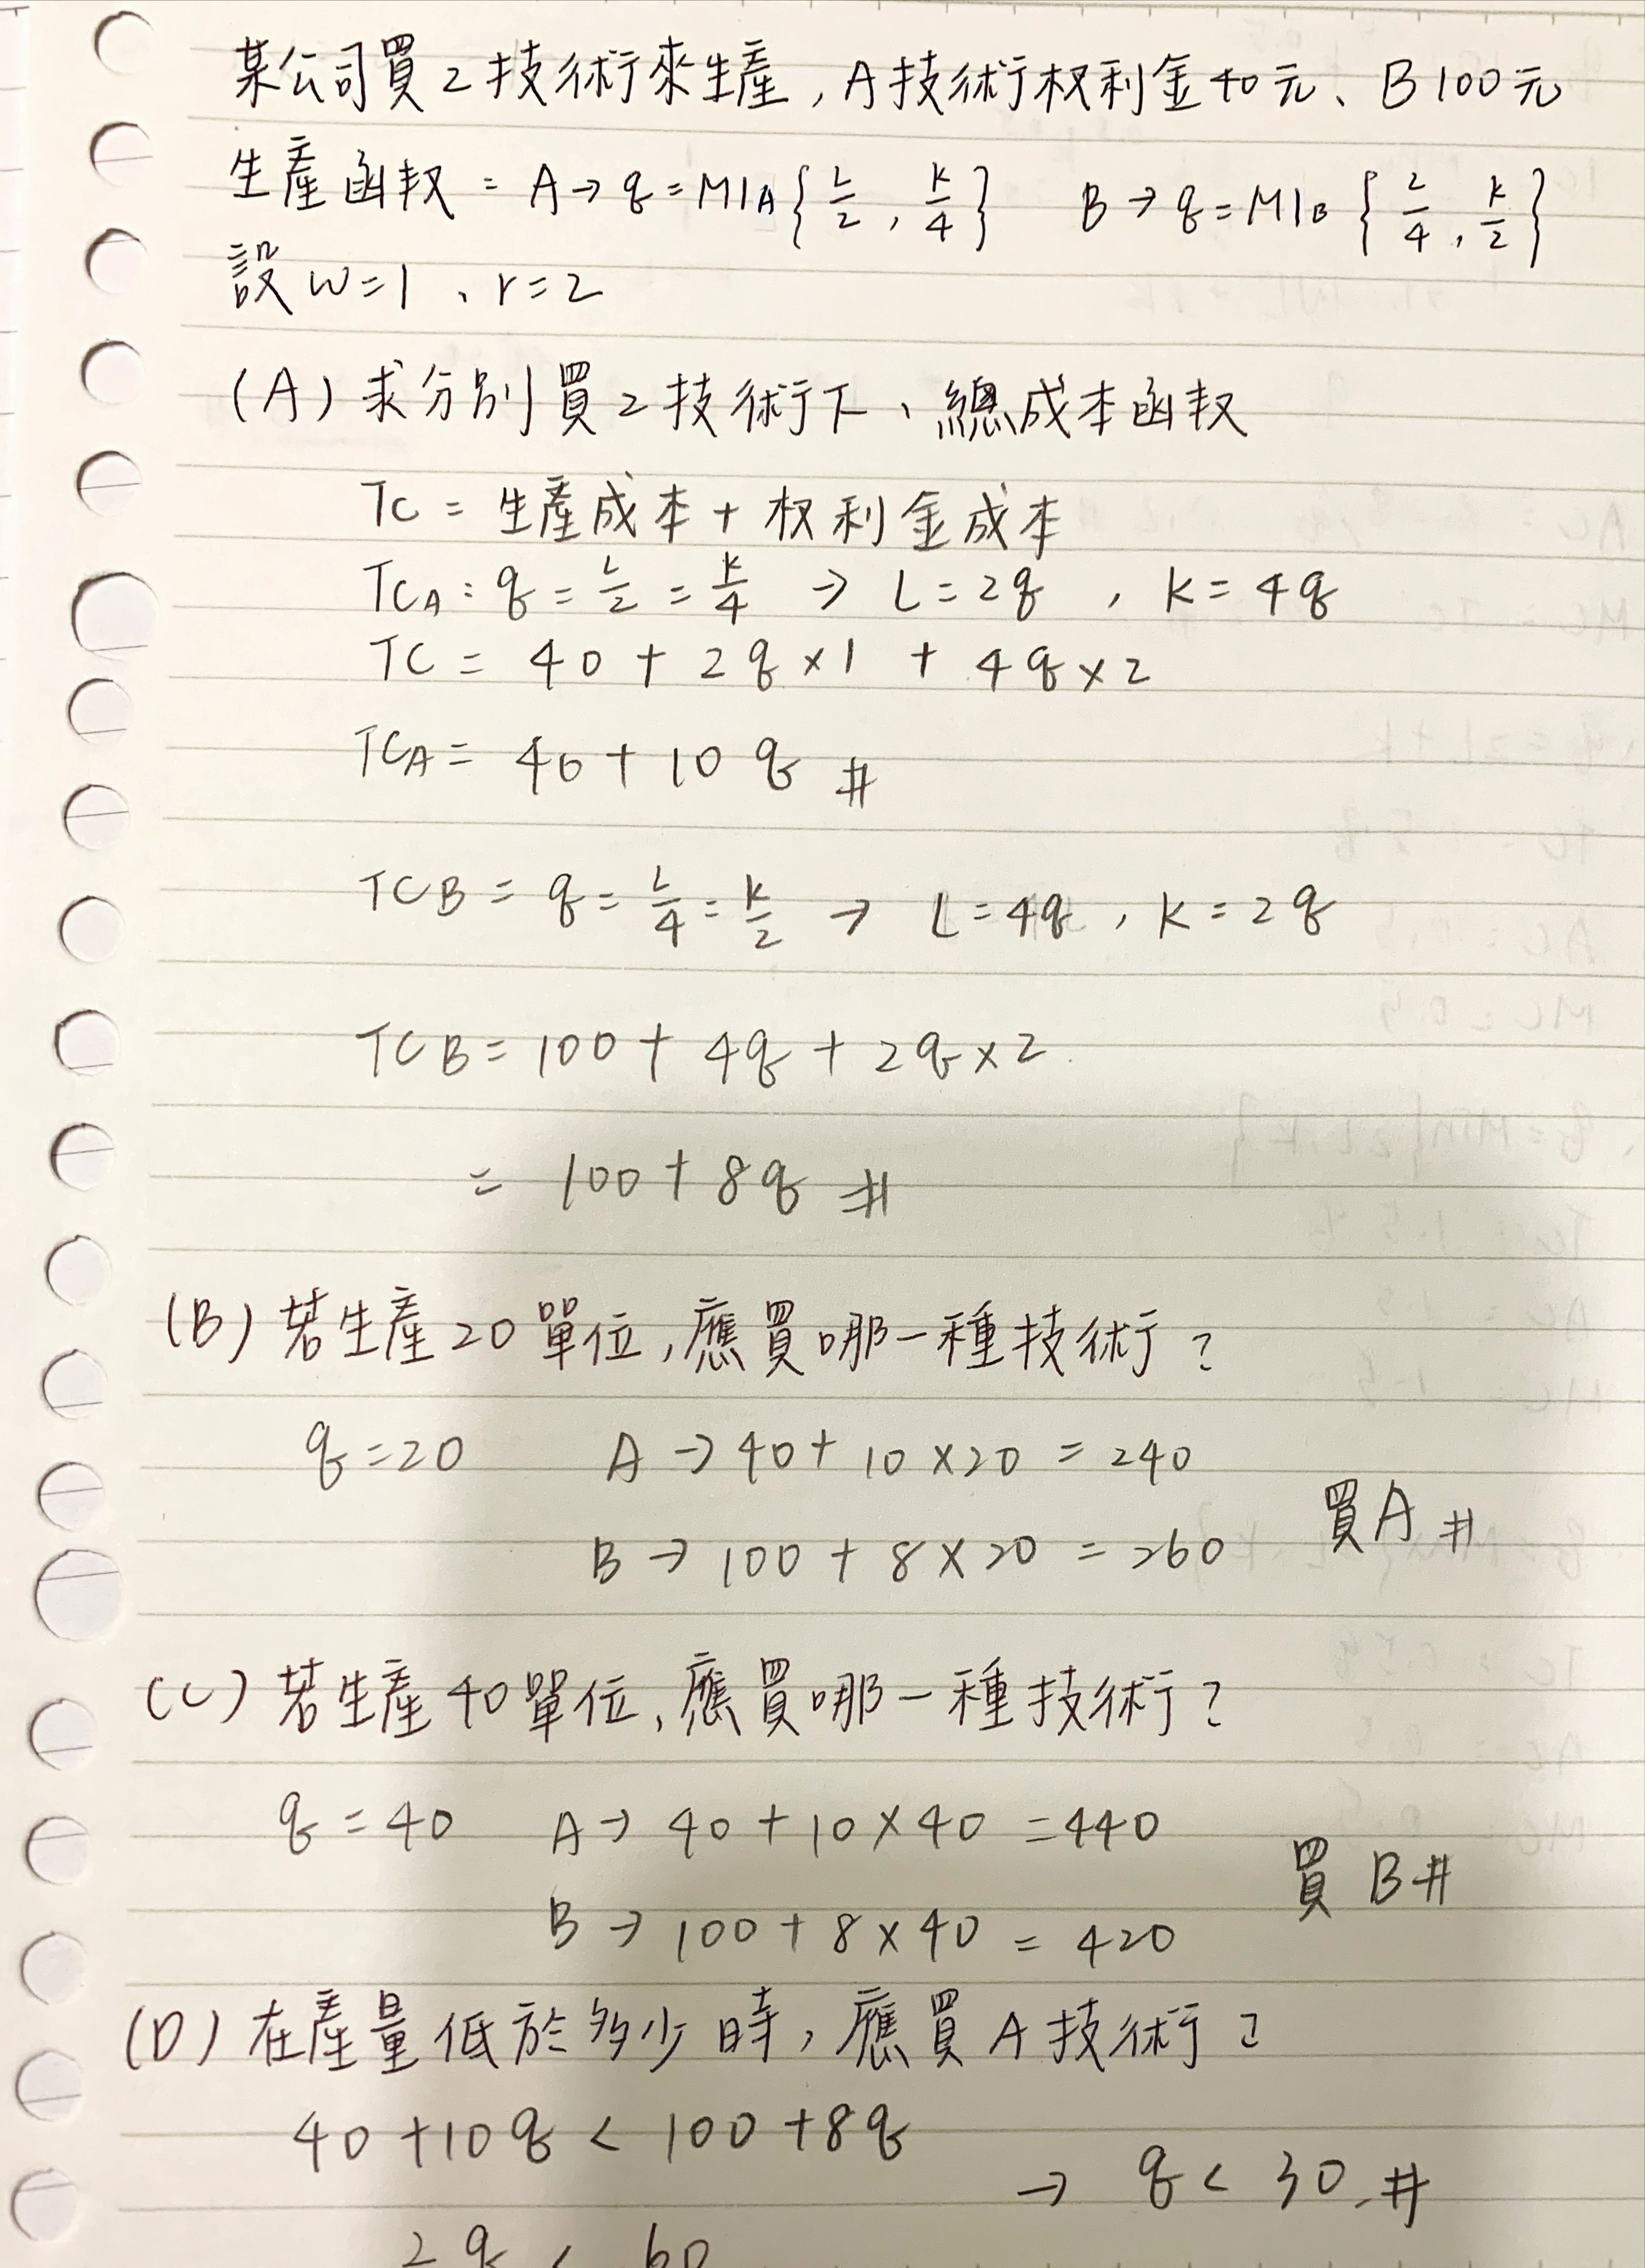 某公司買2技術來生產,A技術权利金40元、B100元
生產函权 = A→q=MIA{L/2, K/4} B→q=MIB{L/4, K/2}
設 w=1、r=2
(A) 求分別買2技術下、總成本函权
TC = 生產成本 + 权利金成本
TCA: q = L/2 = K/4 → L=2q , K=4q
TC = 40 + 2q×1 + 4q×2
TCA = 40+10q #
TCB = q = L/4 = K/2 → L=4q , K=2q
TCB = 100 + 4q + 2q×2
= 100+8q #
(B) 若生產20單位,應買哪一種技術?
q=20 A→40+10×20=240
買A #
B→100+8×20=260
(C) 若生產40單位,應買哪一種技術?
q=40 A→40+10×40=440
買B#
B→100+8×40=420
(D) 在產量低於多少時,應買A技術?
40+10q < 100+8q
→ q<30 #
2q < 60